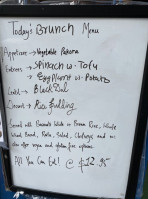 Today's Brunch Menu
Appetizer → Vegetable Pakora
Entrees → Spinach w. Tofu
→ Eggplant w. Potato
→ Black Dal
Dessert → Rice Pudding
served with Basmati White or Brown Rice, Whole
Wheat Bread, Raita, Salad, Chutneys and we
also offer vegan and gluten free options.
All You Can Eat! @ $12.95